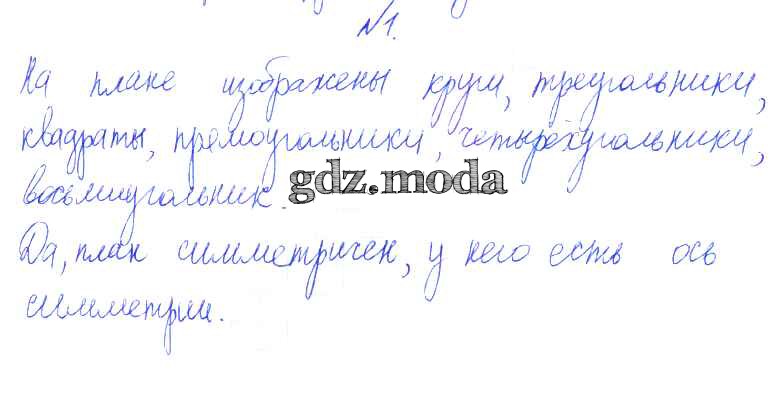 №1.
На плане изображены круги, треугольники,
квадраты, прямоугольники, четырёхугольники,
восьмиугольник.
gdz.moda
Да, план симметричен, у него есть ось
симметрии.